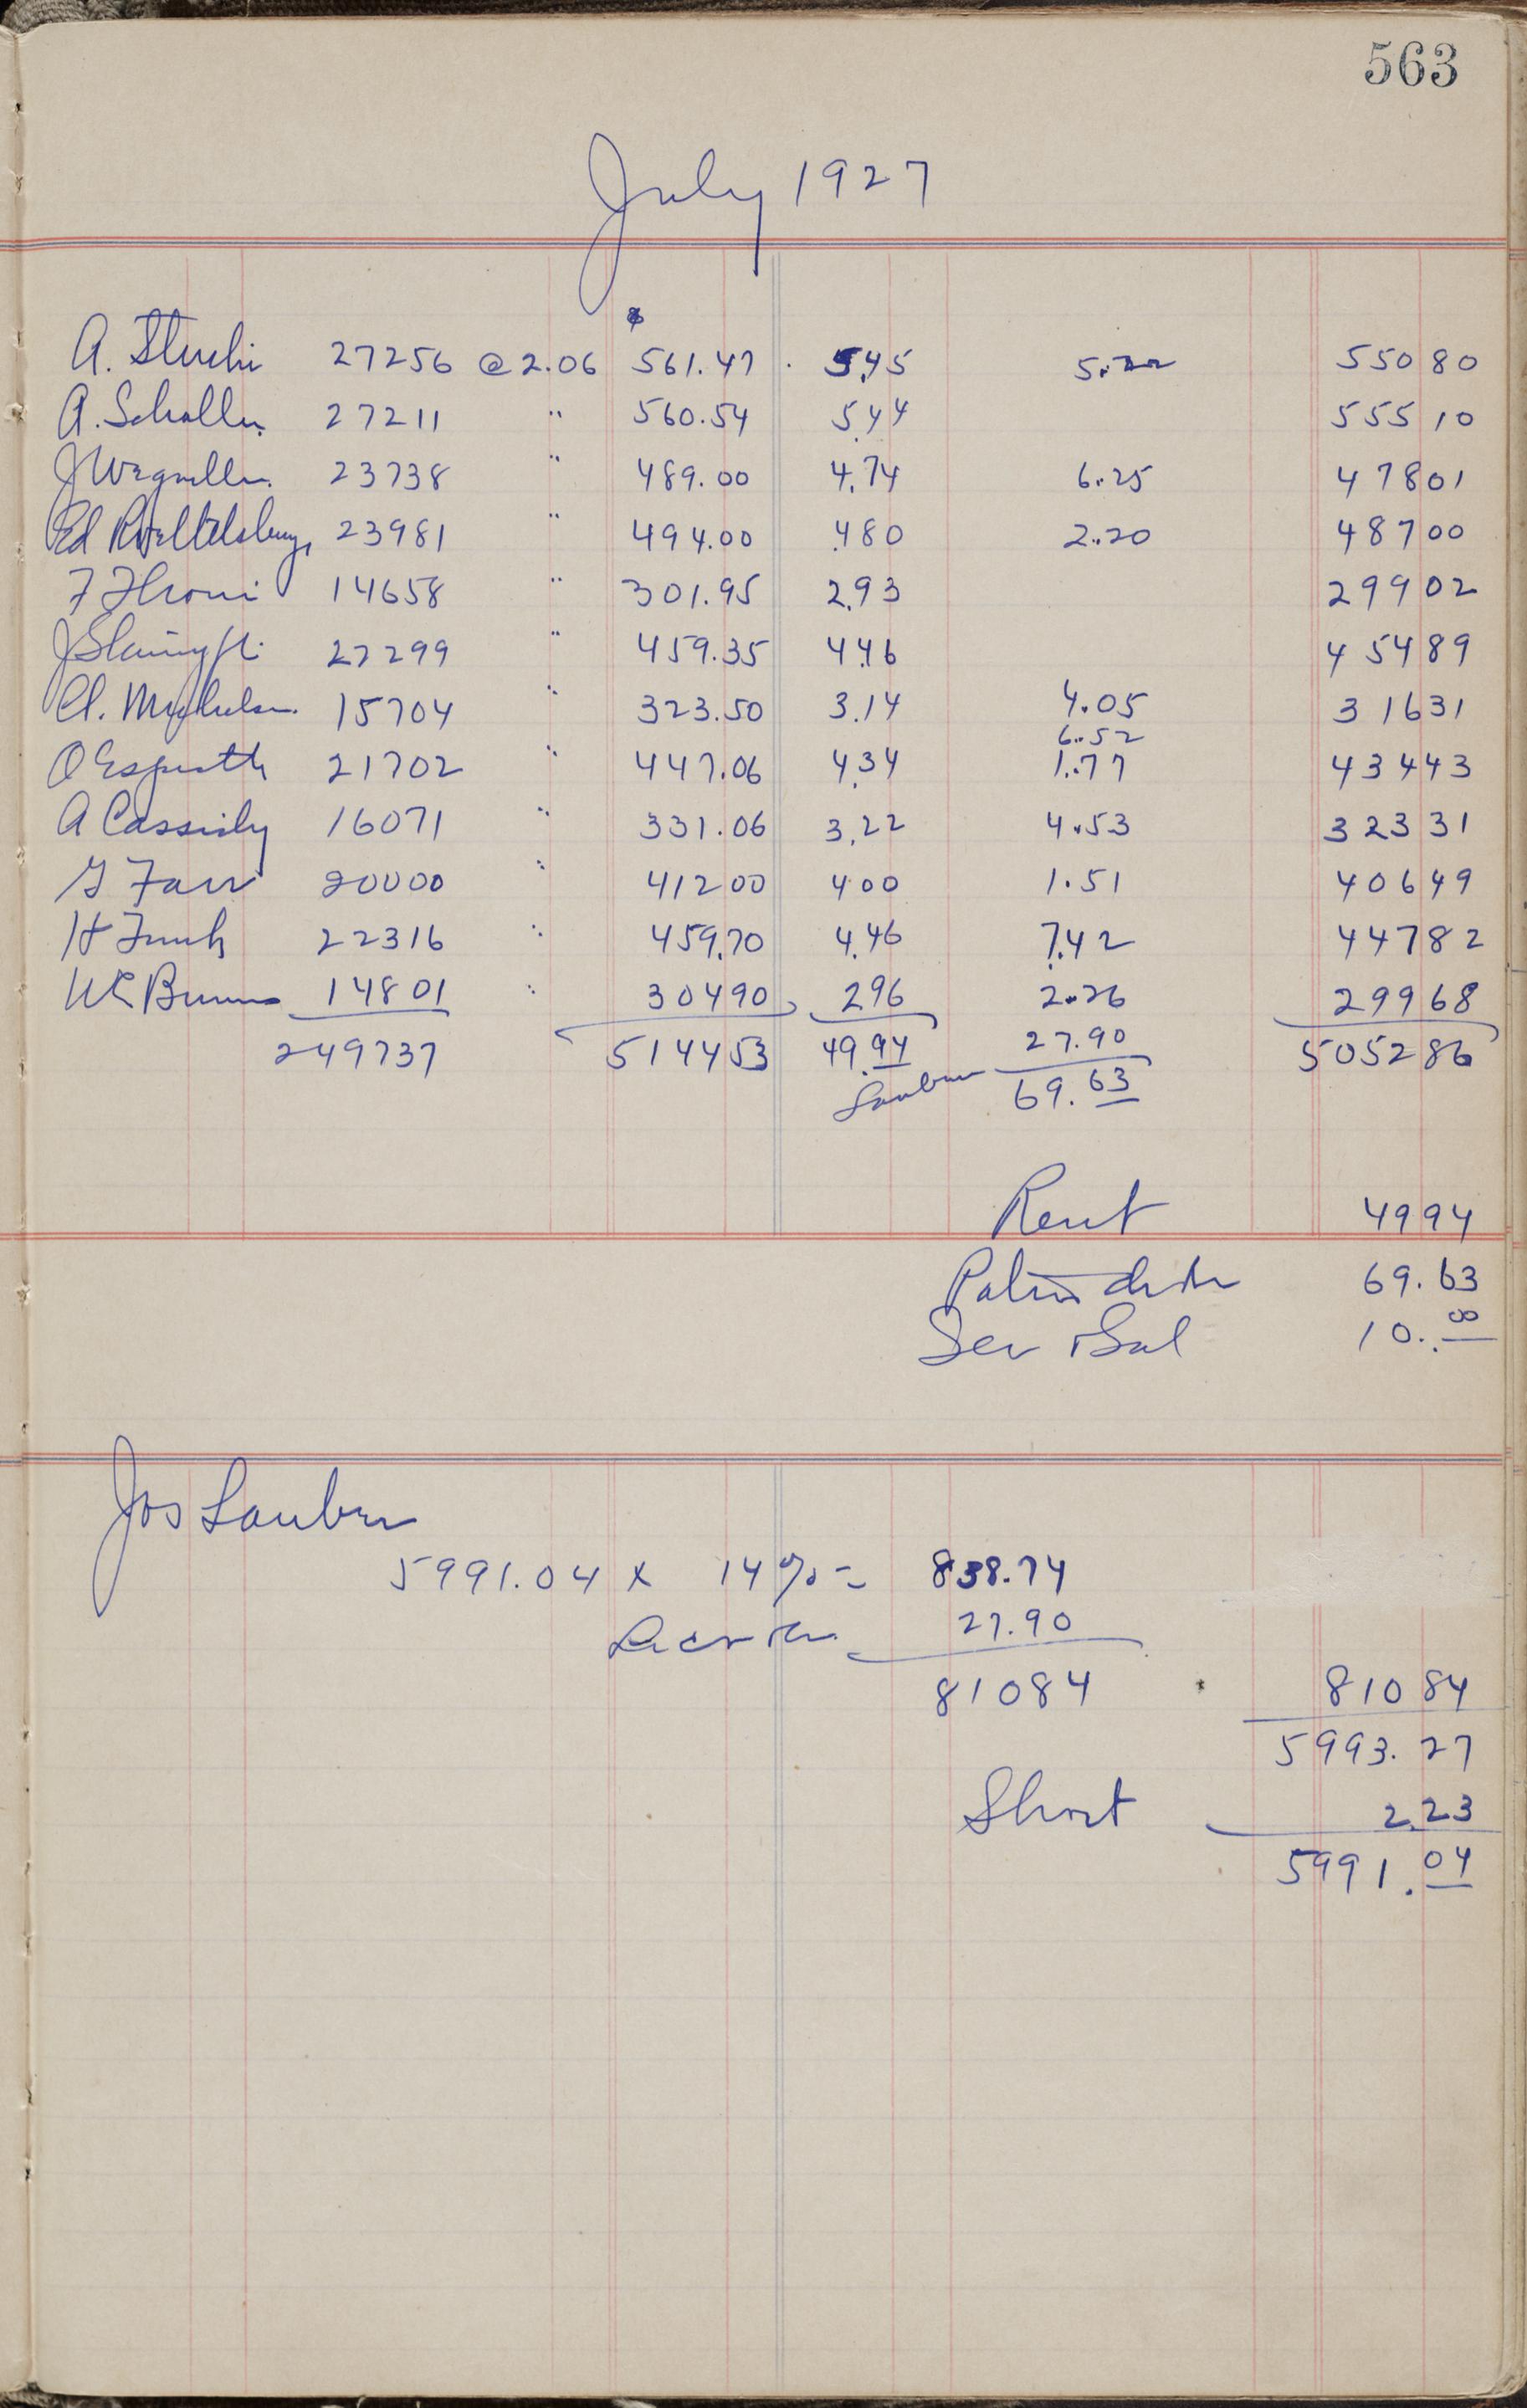 563
July 1927
$
A. Stuchi 27256 @ 2.06 561.47 5.45 5.22 550 80
A. Schaller 27211 " 560.54 5.44 555 10
J 23738 " 489.00 4.74 6.25 478 01
Ed 23981 " 494.00 4 80 2.20 487 00
F 14658 " 301.95 2.93 299 02
J 22299 " 459.35 4.46 454 89
15704 " 323.50 3.14 4.05 316 31
6.52
O 21702 " 447.06 4.34 1.77 434 43
A Cassidy 16071 " 331.06 3.22 4.53 323 31
G Farr 20000 " 412 00 4 00 1.51 406 49
H Funk 22316 " 459.70 4.46 7.42 447 82
WE Burns 14801 " 304 90 2 96 2.26 299 68
27.90
249737 5144 53 49.94 5052 86
Lauber 69.63
Rent 49 94
69.63
Sec Sal 10.00
Jos Lauber
5991.04 x 14% = 838.74
27.90
810 84 810 84
5993.27
Short 2.23
5991.04